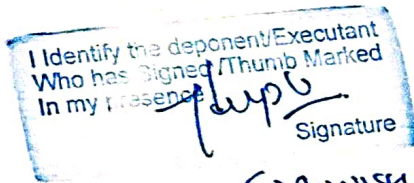 I Identify the deponent/Executant
Who has Signed/Thumb Marked
In my presence
Signature